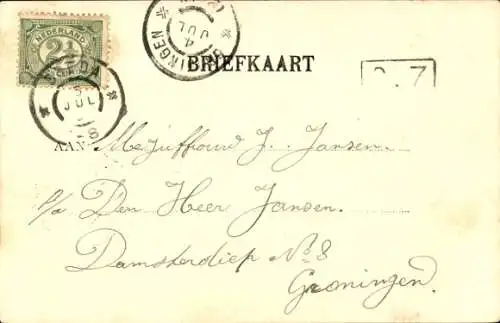 NEDERLAND
2½
BREDA
5 JUL
GRONINGEN
4
JUL
BRIEFKAART
AAN Mejuffrouw J. Jansen.
p/a Den Heer Jansen.
Damsterdiep No. 8
Groningen.